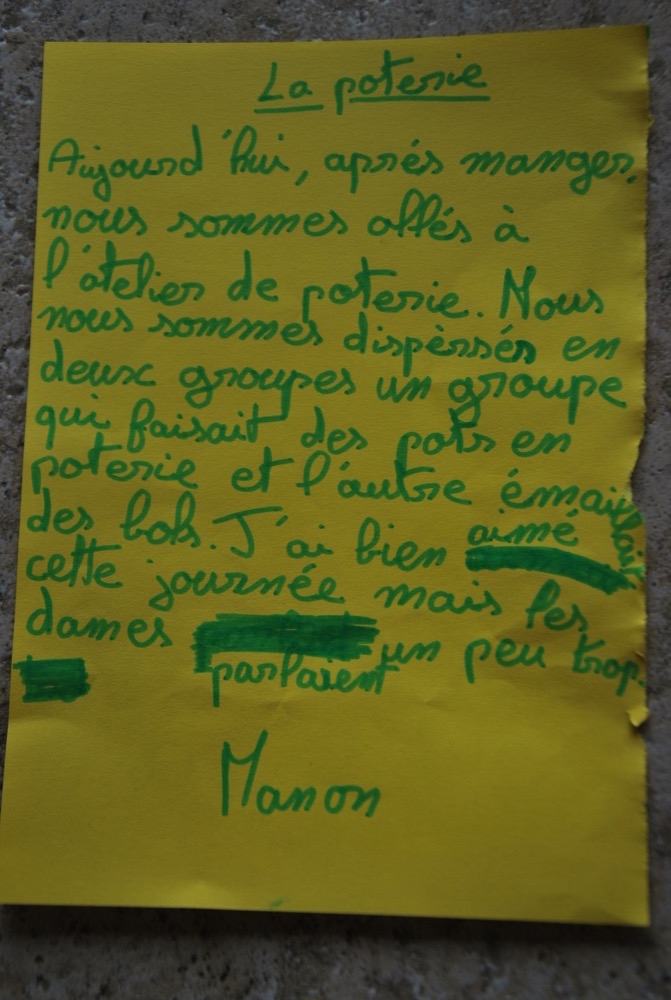 La poterie
Aujourd'hui, après manger,
nous sommes allés à
l'atelier de poterie. Nous
nous sommes dispèrsés en
deux groupes un groupe
qui faisait des pots en
poterie et l'autre émaillait
des bols. J'ai bien aimé
cette journée mais les
dames parlaient un peu trop.
Manon